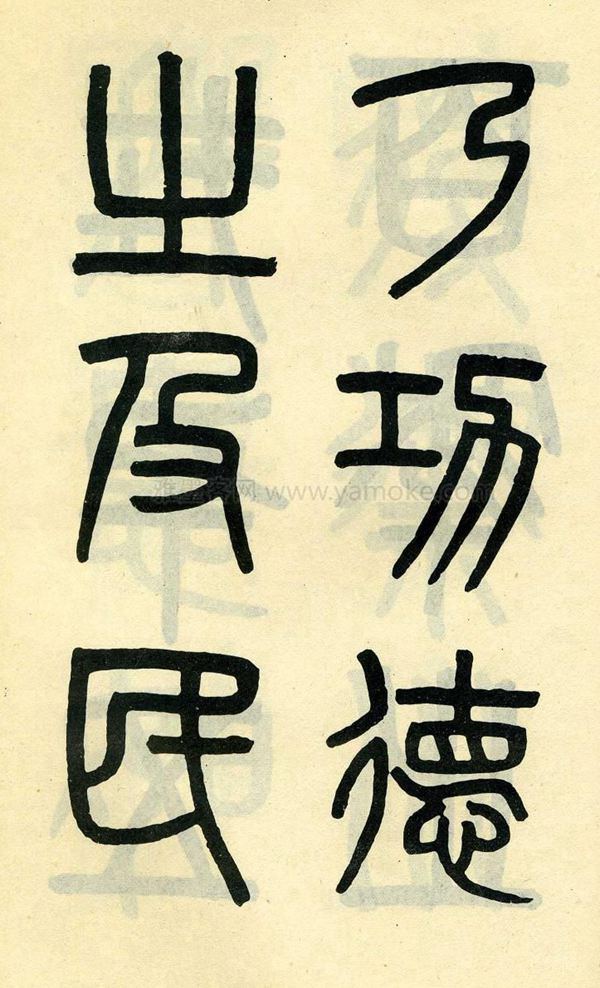 乃功德
之及民
雅墨客网 www.yamoke.com